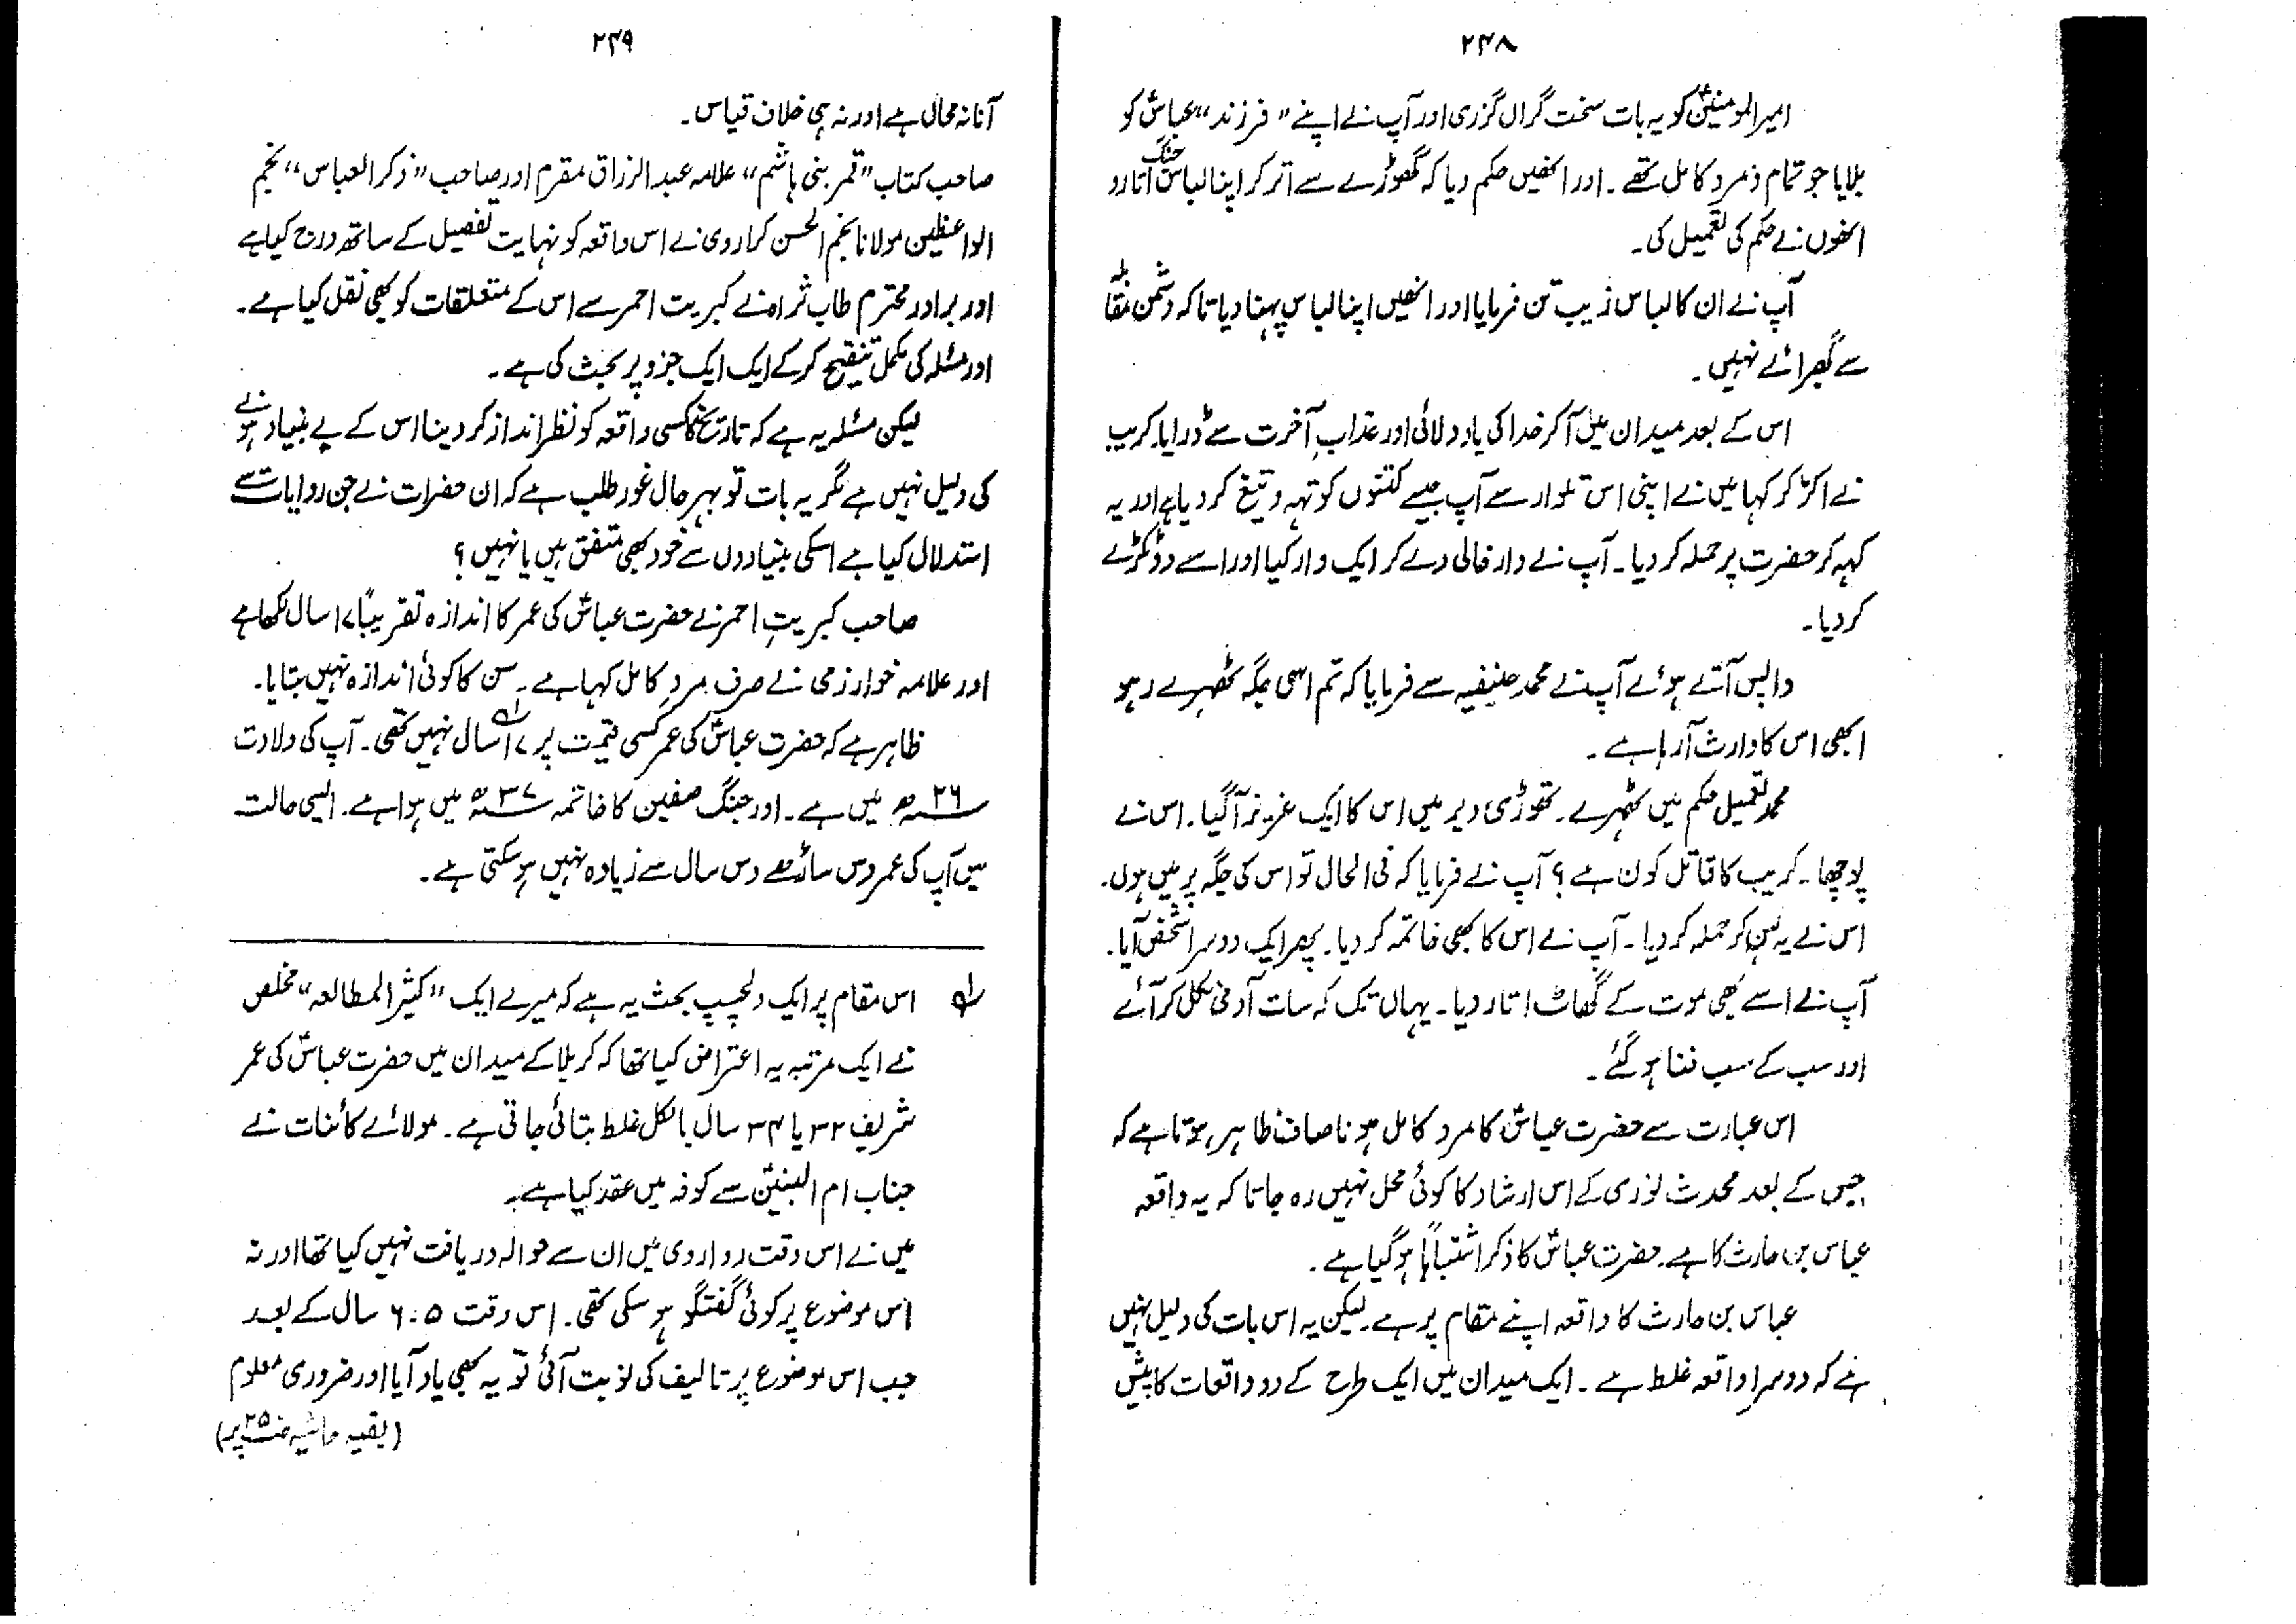 ۲۴۸
امیرالمومنینؑ کو یہ بات سخت گراں گزری اور آپ نے اپنے "فرزند" عباسؑ کو
بلایا جو تمام و مرد کامل تھے۔ اور انھیں حکم دیا کہ گھوڑے سے اتر کر اپنا لباس جنگ اتارو
انھوں نے حکم کی تعمیل کی۔
آپ نے ان کا لباس زیب تن فرمایا اور انھیں اپنا لباس پہنا دیا تاکہ دشمن مقابلہ
سے گھبرائے نہیں۔
اس کے بعد میدان میں آکر خدا کی یاد دلائی اور عذابِ آخرت سے ڈرایا۔ کریب
نے اکڑ کر کہا میں نے اپنی اس تلوار سے آپ جیسے کتنوں کو تہہ و تیغ کر دیا ہے اور یہ
کہہ کر حضرت پر حملہ کر دیا۔ آپ نے وار خالی دے کر ایک وار کیا اور اسے دو ٹکڑے
کر دیا۔
واپس آتے ہوئے آپ نے محمد حنیفیہ سے فرمایا کہ تم اسی جگہ ٹھہرے رہو
ابھی اس کا وارث آرہا ہے۔
محمد تعمیل حکم میں ٹھہرے۔ تھوڑی دیر میں اس کا ایک عزیز آگیا۔ اس نے
پوچھا۔ کریب کا قاتل کون ہے؟ آپ نے فرمایا کہ فی الحال تو اس کی جگہ پر میں ہوں۔
اس نے یہ سن کر حملہ کر دیا۔ آپ نے اس کا بھی خاتمہ کر دیا۔ پھر ایک دوسرا شخص آیا۔
آپ نے اسے بھی موت کے گھاٹ اتار دیا۔ یہاں تک کہ سات آدمی نکل کر آئے
اور سب کے سب فنا ہو گئے۔
اس عبارت سے حضرت عباسؑ کا مرد کامل ہونا صاف ظاہر ہوتا ہے کہ
جس کے بعد محدث نوری کے اس ارشاد کا کوئی محل نہیں رہ جاتا کہ یہ واقعہ
عباس بن حارث کا ہے۔ حضرت عباسؑ کا ذکر اشتباہاً ہو گیا ہے۔
عباس بن حارث کا واقعہ اپنے مقام پر ہے۔ لیکن یہ اس بات کی دلیل نہیں
ہے کہ دوسرا واقعہ غلط ہے۔ ایک میدان میں ایک طرح کے دو واقعات کا پیش
۲۴۹
آنا نہ محال ہے اور نہ ہی خلاف قیاس۔
صاحب کتاب "قمر بنی ہاشم" علامہ عبدالرزاق مقرم اور صاحب "ذکر العباس" نجم
الواعظین مولانا نجم الحسن کراروی نے اس واقعہ کو نہایت تفصیل کے ساتھ درج کیا ہے
اور برادر محترم طاب ثراہ نے کبریت احمر سے اس کے متعلقات کو بھی نقل کیا ہے۔
اور مسئلہ کی مکمل تنقیح کر کے ایک ایک جزو پر بحث کی ہے۔
لیکن مسئلہ یہ ہے کہ تاریخ کا کسی واقعہ کو نظر انداز کر دینا اس کے بے بنیاد ہونے
کی دلیل نہیں ہے مگر یہ بات تو بہر حال غور طلب ہے کہ ان حضرات نے جن روایات سے
استدلال کیا ہے اسکی بنیادوں سے خود بھی متفق ہیں یا نہیں؟
صاحب کبریتِ احمر نے حضرت عباسؑ کی عمر کا اندازہ تقریباً ۱۷ سال لکھا ہے
اور علامہ خوارزمی نے صرف مردِ کامل کہا ہے۔ سن کا کوئی اندازہ نہیں بتایا۔
ظاہر ہے کہ حضرت عباسؑ کی عمر کسی قیمت پر ۱۷ سال نہیں تھی۔ آپ کی ولادت
۲۶ھ میں ہے۔ اور جنگ صفین کا خاتمہ ۳۷ھ میں ہوا ہے۔ ایسی حالت
میں آپ کی عمر دس ساڑھے دس سال سے زیادہ نہیں ہو سکتی ہے۔
لہ اس مقام پر ایک دلچسپ بحث یہ ہے کہ میرے ایک "کثیر المطالعہ" مخلص
نے ایک مرتبہ یہ اعتراض کیا تھا کہ کربلا کے میدان میں حضرت عباسؑ کی عمر
شریف ۳۲ یا ۳۴ سال بالکل غلط بتائی جاتی ہے۔ مولائے کائنات نے
جناب ام البنینؑ سے کوفہ میں عقد کیا ہے۔
میں نے اس وقت رواروی میں ان سے حوالہ دریافت نہیں کیا تھا اور نہ
اس موضوع پر کوئی گفتگو ہو سکی تھی۔ اس وقت ۶۔۵ سال کے بعد
جب اس موضوع پر تالیف کی نوبت آئی تو یہ بھی یاد آیا اور ضروری معلوم
(بقیہ حاشیہ ص۲۵۰ پر)